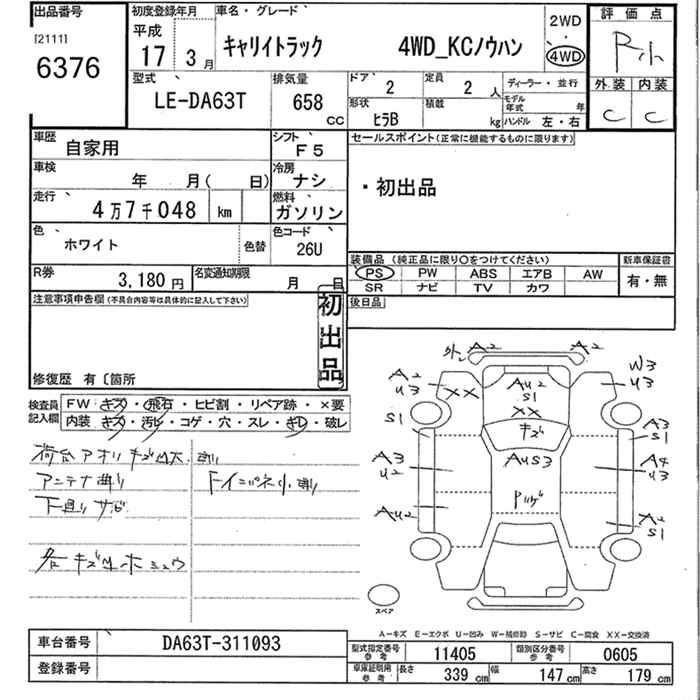 出品番号
[2111]
6376
初度登録年月
平成
17 3月
車名・グレード
キャリイトラック 4WD_KCノウハン
2WD
・
4WD
評価点
R小
外装 内装
C C
型式
LE-DA63T
排気量
658
CC
ドア 2
定員 2 人
ディーラー・並行
形状 ヒラB
積載 kg
モデル年式 年
ハンドル 左・右
車歴 自家用
シフト F5
車検 年 月( 日)
冷房 ナシ
走行 4万7千048 km
燃料 ガソリン
色 ホワイト
色替
色コード 26U
R券 3,180円
名変通知期限 月 日
セールスポイント(正常に機能するものに限ります)
・初出品
装備品(純正品に限り○をつけてください)
PS PW ABS エアB AW
SR ナビ TV カワ
新車保証書
有・無
後日品
注意事項申告欄(不具合内容等は具体的に記入して下さい)
初出品
修復歴 有〔箇所
検査員記入欄
FW キズ・飛石・ヒビ割・リペア跡・×要
内装 キズ・汚レ・コゲ・穴・スレ・ギレ・破レ
荷台アオリ キズ凹大 曲り
アンテナ曲り
下廻りサビ
各キズ凹ホシュウ
外 A2 A2
A2
U3
XX
S1
AU2
S1
XX
キズ
W3
U3
A3
S1
A3
U2
AUS3
A4
U3
AU2
A2
S1
スペア
A-キズ E-エクボ U-凹み W-補修跡 S-サビ C-腐食 XX-交換済
車台番号 DA63T-311093
登録番号
型式指定番号 参考 11405
類別区分番号 参考 0605
車庫証明用 参考 長さ 339 cm 幅 147 cm 高さ 179 cm